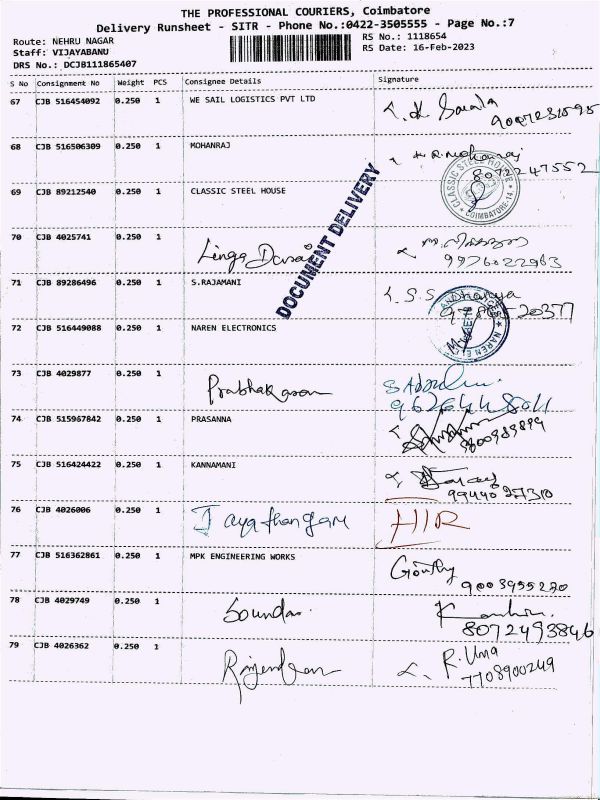 THE PROFESSIONAL COURIERS, Coimbatore
Delivery Runsheet - SITR - Phone No.:0422-3505555 - Page No.:7
Route: NEHRU NAGAR
RS No.: 1118654
Staff: VIJAYABANU
RS Date: 16-Feb-2023
DRS No.: DCJB111865407
S No Consignment No Weight PCS Consignee Details Signature
67 CJB 516454092 0.250 1 WE SAIL LOGISTICS PVT LTD
68 CJB 516506309 0.250 1 MOHANRAJ
8072247552
69 CJB 89212540 0.250 1 CLASSIC STEEL HOUSE
CLASSIC STEEL HOUSE
COIMBATORE-14
DOCUMENT DELIVERY
70 CJB 4025741 0.250 1 Linga Durai
9976022963
71 CJB 89286496 0.250 1 S.RAJAMANI
72 CJB 516449088 0.250 1 NAREN ELECTRONICS
73 CJB 4029877 0.250 1 Prabhakaran
74 CJB 515967842 0.250 1 PRASANNA
75 CJB 516424422 0.250 1 KANNAMANI
9944027310
76 CJB 4026006 0.250 1 Jayathangam
77 CJB 516362861 0.250 1 MPK ENGINEERING WORKS
Gouthy
9003955270
78 CJB 4029749 0.250 1
8072493846
79 CJB 4026362 0.250 1
R. Uma
7708900249